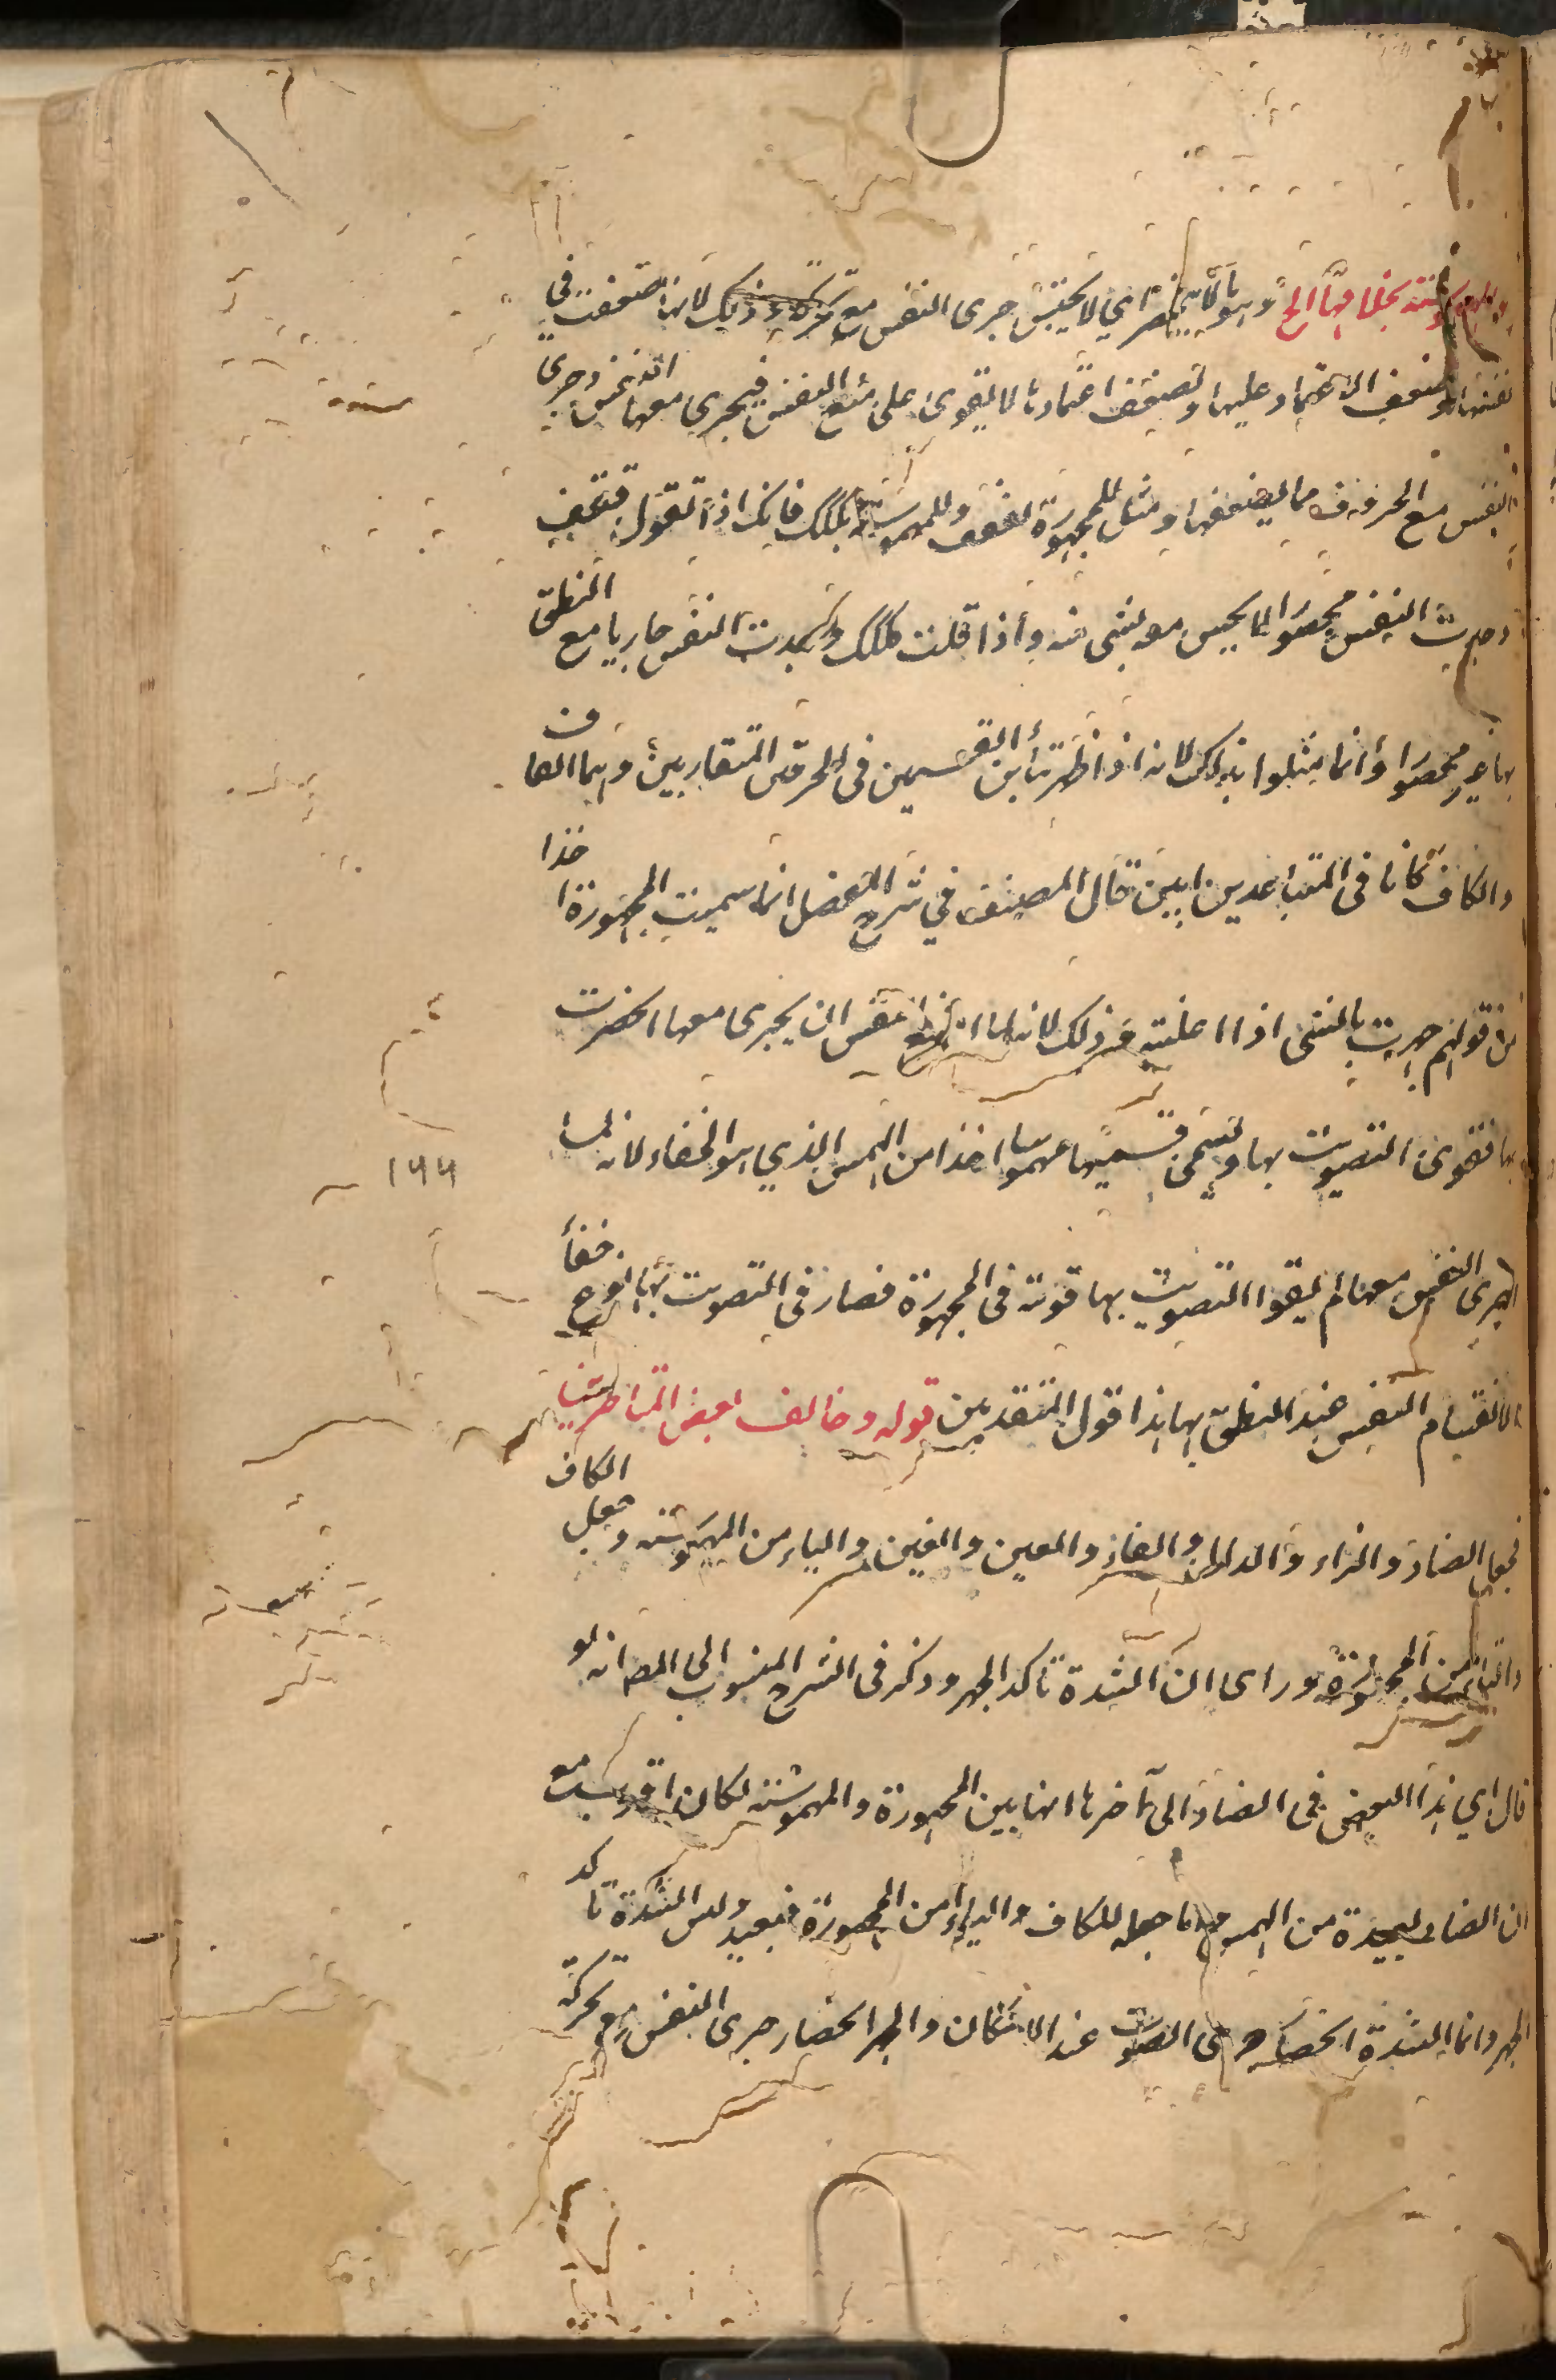 والمهموسة بخلافها الخ وهو ما لا ينحصر اي لا يحتبس جرى النفس مع تحركه وذلك لانها ضعفت في
نفسها وضعف الاعتماد عليها ولضعف اعتمادها لا يقوى على منع النفس فيجرى معها النفس وجرى
النفس مع الحروف مما يضعفها ومثل للمجهورة بققق وللمهموسة بككك فانك اذا تقول ققق
وجدت النفس محصورا لا يحس معه بشيء منه واذا قلت ككك وجدت النفس جاريا مع النطق
بها غير محصور وانما مثلوا بذلك لانه اذا ظهر تباين القسمين في الحرفين المتقاربين وهما القاف
والكاف كانا في المتباعدين ابين قال المصنف في شرح المفصل انما سميت المجهورة اخذا
من قولهم جهرت بالشيء اذا اعلنته وذلك لانه لما امتنع النفس ان يجرى معها انحصرت
بها فقوى التصويت بها وسمى قسيمها مهموسا اخذا من الهمس الذي هو الخفاء لانه لما
جرى النفس معها لم يقو التصويت بها قوته في المجهورة فصار في التصويت بها نوع خفاء
لانقسام النفس عند النطق بها هذا قول المتقدمين قوله وخالف بعض المتاخرين
فجعل الضاد والزاء والدال والفاء والعين والغين والياء من المهموسة وجعل الكاف
والتاء من المجهورة وراى ان الشدة تاكد الجهر وذكر في الشرح المنسوب الى المص انه لو
قال اي هذا البعض في الضاد الى آخرها انها بين المجهورة والمهموسة لكان اقرب مع
ان الضاد بعيدة من الهمس واما جعله للكاف والتاء من المجهورة فبعيد وليس الشدة تاكد
الجهر وانما الشدة انحصار جرى الصوت عند الاسكان والجهر انحصار جرى النفس مع تحركه
١٩٩